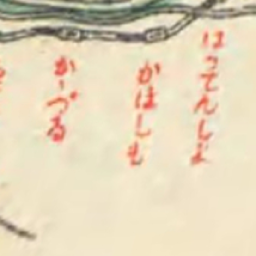 はつてんしよ
かはしも
かゝづる